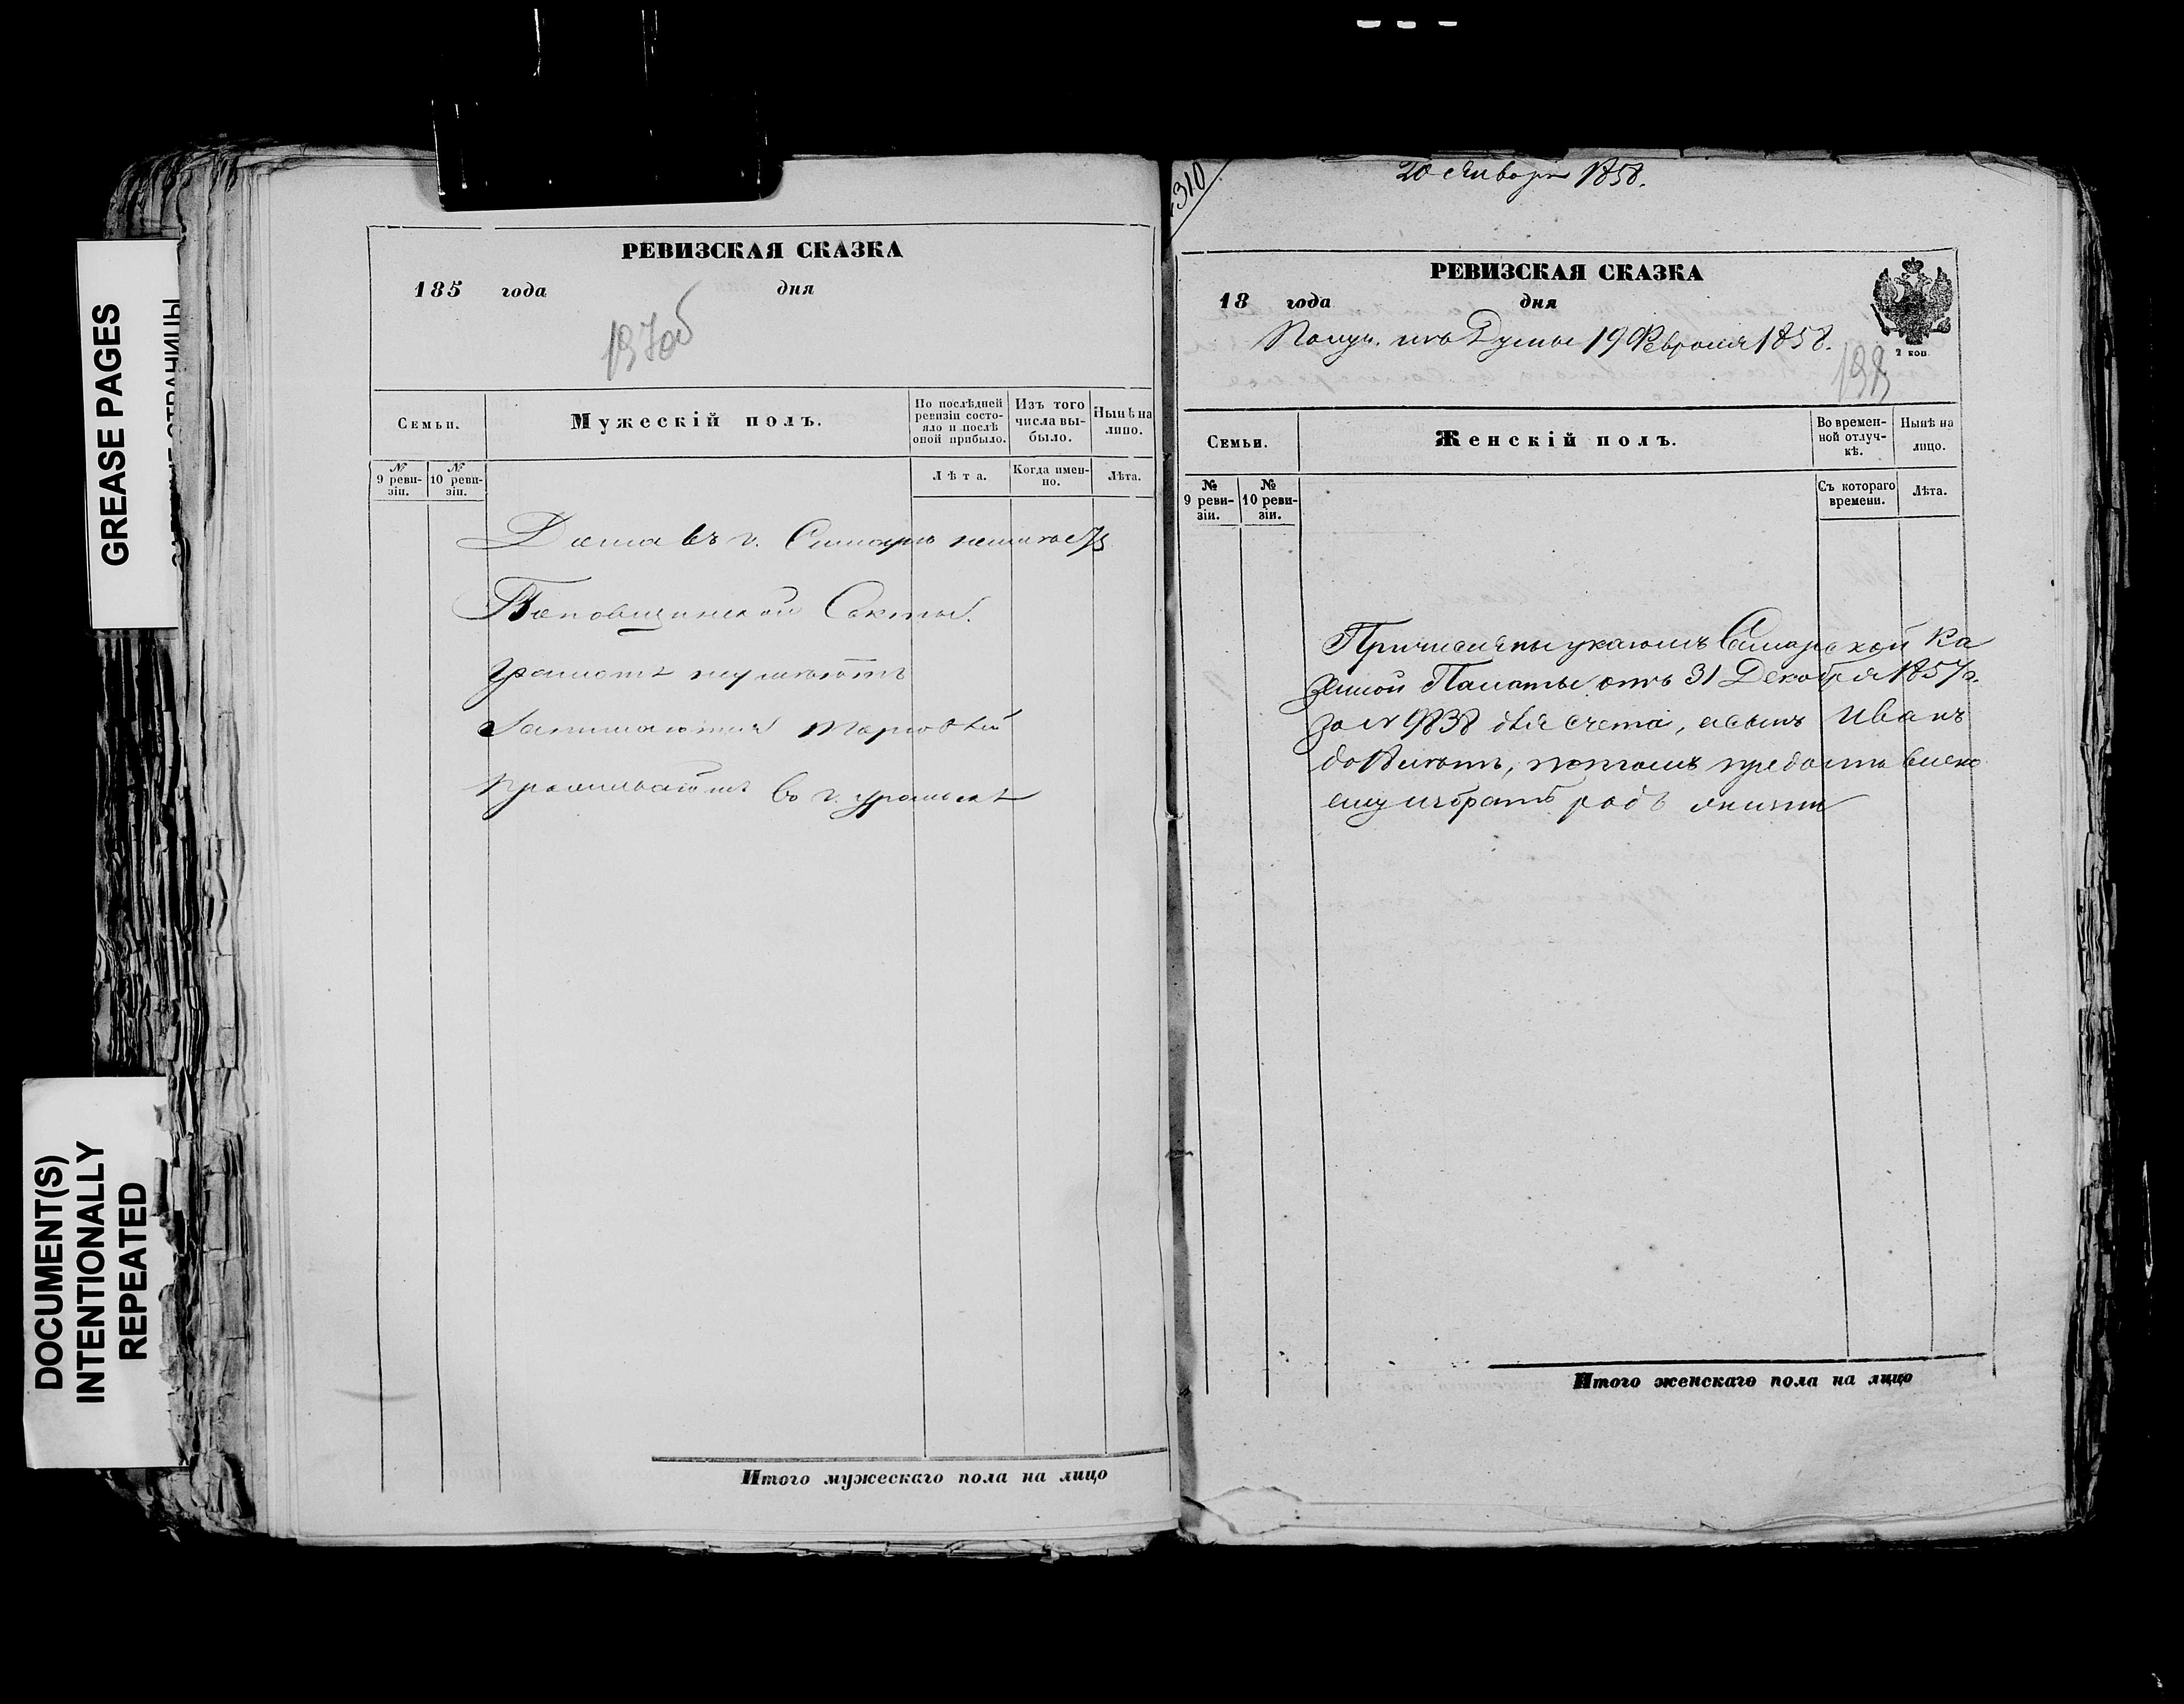 GREASE PAGES
DOCUMENT(S)
INTENTIONALLY
REPEATED
РЕВИЗСКАЯ СКАЗКА
185 года дня
197об
Семьи.
Мужескій полъ.
По послѣдней ревизіи состояло и послѣ оной прибыло.
Изъ того числа выбыло.
Нынѣ на лицо.
№ 9 ревизіи.
№ 10 ревизіи.
Лѣта.
Когда именно.
Лѣта.
Дома въ г. Самарѣ неимѣетъ
Поповщинской Секты.
Грамотѣ неумѣютъ
Занимаются торговлей
Проживаютъ въ г. Уральскѣ
Итого мужескаго пола на лицо
310
20 Января 1858.
РЕВИЗСКАЯ СКАЗКА
18 года дня
2 коп
Получ. изъ Думы 19 Февраля 1858.
198
Семьи.
Женскій полъ.
Во временной отлучкѣ.
Нынѣ на лицо.
№ 9 ревизіи.
№ 10 ревизіи.
Съ котораго времени.
Лѣта.
Причислены указомъ Самарской Ка
зенной Палаты отъ 31 Декабря 1857 г.
за № 9838 для счета, а сынъ Иванъ
до лѣтъ, потомъ предоставлено
ему избрать родъ жизни
Итого женскаго пола на лицо